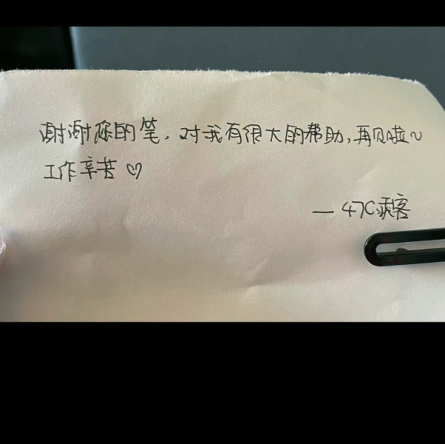 谢谢您的笔，对我有很大的帮助，再见啦~
工作辛苦♡
— 47C乘客